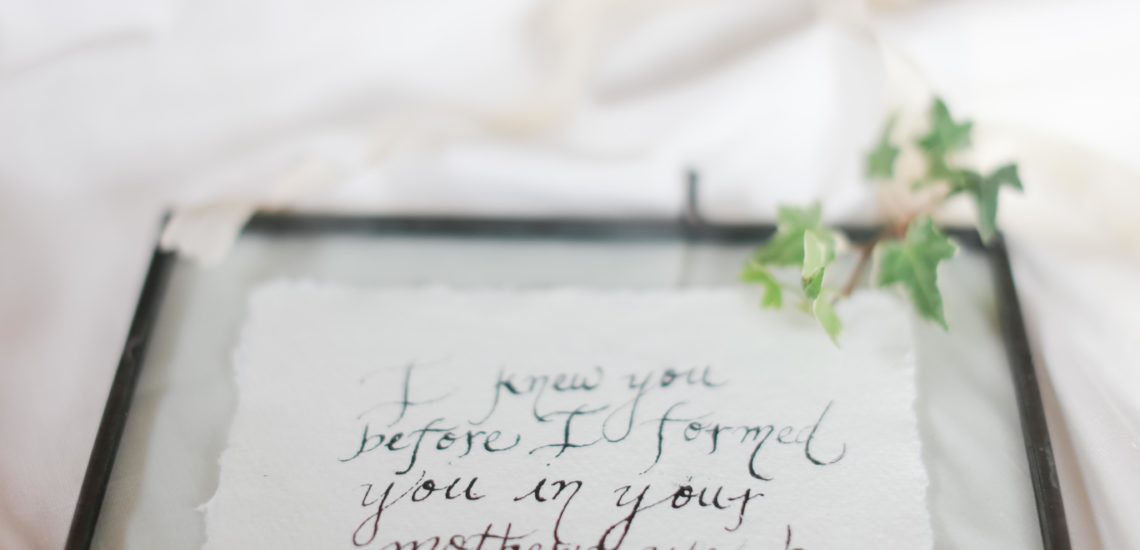 I knew you
before I formed
you in your